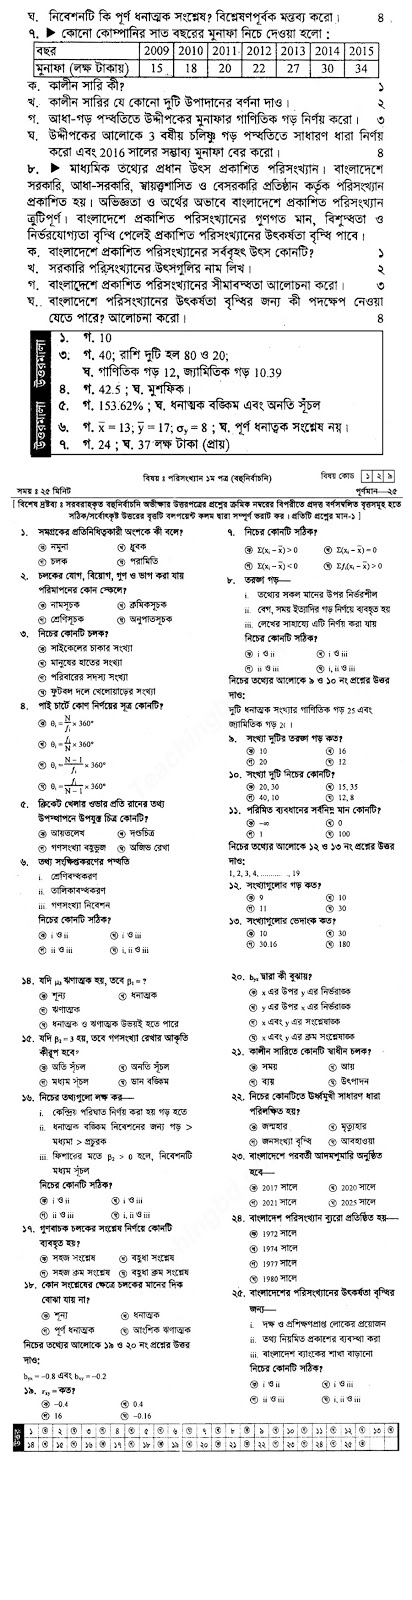 ঘ. নিবেশনটি কি পূর্ণ ধনাত্মক সংশ্লেষ? বিশ্লেষণপূর্বক মন্তব্য করো। ৪
৭. ▶ কোনো কোম্পানির সাত বছরের মুনাফা নিচে দেওয়া হলো :
বছর 2009 2010 2011 2012 2013 2014 2015
মুনাফা (লক্ষ টাকায়) 15 18 20 22 27 30 34
ক. কালীন সারি কী? ১
খ. কালীন সারির যে কোনো দুটি উপাদানের বর্ণনা দাও। ২
গ. আধা-গড় পদ্ধতিতে উদ্দীপকের মুনাফার গাণিতিক গড় নির্ণয় করো। ৩
ঘ. উদ্দীপকের আলোকে 3 বর্ষীয় চলিষ্ণু গড় পদ্ধতিতে সাধারণ ধারা নির্ণয়
করো এবং 2016 সালের সম্ভাব্য মুনাফা বের করো। ৪
৮. ▶ মাধ্যমিক তথ্যের প্রধান উৎস প্রকাশিত পরিসংখ্যান। বাংলাদেশে
সরকারি, আধা-সরকারি, স্বায়ত্তশাসিত ও বেসরকারি প্রতিষ্ঠান কর্তৃক পরিসংখ্যান
প্রকাশিত হয়। অভিজ্ঞতা ও অর্থের অভাবে বাংলাদেশে প্রকাশিত পরিসংখ্যান
ত্রুটিপূর্ণ। বাংলাদেশে প্রকাশিত পরিসংখ্যানের গুণগত মান, বিশুদ্ধতা ও
নির্ভরযোগ্যতা বৃদ্ধি পেলেই প্রকাশিত পরিসংখ্যানের উৎকর্ষতা বৃদ্ধি পাবে।
ক. বাংলাদেশে প্রকাশিত পরিসংখ্যানের সর্ববৃহৎ উৎস কোনটি? ১
খ. সরকারি পরিসংখ্যানের উৎসগুলির নাম লিখ। ২
গ. বাংলাদেশে প্রকাশিত পরিসংখ্যানের সীমাবদ্ধতা আলোচনা করো। ৩
ঘ. বাংলাদেশে পরিসংখ্যানের উৎকর্ষতা বৃদ্ধির জন্য কী পদক্ষেপ নেওয়া
যেতে পারে? আলোচনা করো। ৪
উত্তরমালা
১. গ. 10
৩. গ. 40; রাশি দুটি হল 80 ও 20;
ঘ. গাণিতিক গড় 12, জ্যামিতিক গড় 10.39
৪. গ. 42.5 ; ঘ. মুশফিক।
৫. গ. 153.62% ; ঘ. ধনাত্মক বঙ্কিম এবং অনতি সূঁচল
৬. গ. x̅ = 13; y̅ = 17; σy = 8 ; ঘ. পূর্ণ ধনাত্বক সংশ্লেষ নয়।
৭. গ. 24 ; ঘ. 37 লক্ষ টাকা (প্রায়)
বিষয় : পরিসংখ্যান ১ম পত্র (বহুনির্বাচনি) বিষয় কোড ১ ২ ৯
সময় : ২৫ মিনিট পূর্ণমান—২৫
[ বিশেষ দ্রষ্টব্য : সরবরাহকৃত বহুনির্বাচনি অভীক্ষার উত্তরপত্রের প্রশ্নের ক্রমিক নম্বরের বিপরীতে প্রদত্ত বর্ণসম্বলিত বৃত্তসমূহ হতে
সঠিক/সর্বোৎকৃষ্ট উত্তরের বৃত্তটি বলপয়েন্ট কলম দ্বারা সম্পূর্ণ ভরাট কর । প্রতিটি প্রশ্নের মান-১ ]
১. সমগ্রকের প্রতিনিধিত্বকারী অংশকে কী বলে?
ক নমুনা খ ধ্রুবক
গ চলক ঘ পরামিতি
২. চলকের যোগ, বিয়োগ, গুণ ও ভাগ করা যায়
পরিমাপনের কোন স্কেলে?
ক নামসূচক খ ক্রমিকসূচক
গ শ্রেণিসূচক ঘ অনুপাতসূচক
৩. নিচের কোনটি চলক?
ক সাইকেলের চাকার সংখ্যা
খ মানুষের হাতের সংখ্যা
গ পরিবারের সদস্য সংখ্যা
ঘ ফুটবল দলে খেলোয়াড়ের সংখ্যা
৪. পাই চার্টে কোণ নির্ণয়ের সূত্র কোনটি?
ক θᵢ = N/fᵢ × 360°
খ θᵢ = fᵢ/N × 360°
গ θᵢ = N−1/fᵢ × 360°
ঘ θᵢ = fᵢ/N−1 × 360°
৫. ক্রিকেট খেলার ওভার প্রতি রানের তথ্য
উপস্থাপনে উপযুক্ত চিত্র কোনটি?
ক আয়তলেখ খ দণ্ডচিত্র
গ গণসংখ্যা বহুভুজ ঘ অজিভ রেখা
৬. তথ্য সংক্ষিপ্তকরণের পদ্ধতি
i. শ্রেণিবদ্ধকরণ
ii. তালিকাবদ্ধকরণ
iii. গণসংখ্যা নিবেশন
নিচের কোনটি সঠিক?
ক i ও ii খ i ও iii
গ ii ও iii ঘ i, ii ও iii
৭. নিচের কোনটি সঠিক?
ক Σ(xᵢ − x̅) > 0 খ Σ(xᵢ − x̅) = 0
গ Σ(xᵢ − x̅) < 0 ঘ Σfᵢ(xᵢ − x̅) > 0
৮. তরঙ্গ গড়—
i. তথ্যের সকল মানের উপর নির্ভরশীল
ii. বেগ, সময় ইত্যাদির গড় নির্ণয়ে ব্যবহৃত হয়
iii. লেখের সাহায্যে এটি নির্ণয় করা যায়
নিচের কোনটি সঠিক?
ক i ও ii খ i ও iii
গ ii ও iii ঘ i, ii ও iii
নিচের তথ্যের আলোকে ৯ ও ১০ নং প্রশ্নের উত্তর
দাও:
দুটি ধনাত্মক সংখ্যার গাণিতিক গড় 25 এবং
জ্যামিতিক গড় 20 ।
৯. সংখ্যা দুটির তরঙ্গ গড় কত?
ক 10 খ 16
গ 20 ঘ 12
১০. সংখ্যা দুটি নিচের কোনটি?
ক 20, 30 খ 15, 35
গ 40, 10 ঘ 12, 8
১১. পরিমিত ব্যবধানের সর্বনিম্ন মান কোনটি?
ক −∞ খ 0
গ 1 ঘ 100
নিচের তথ্যের আলোকে ১২ ও ১৩ নং প্রশ্নের উত্তর
দাও:
1, 2, 3, 4, ............, 19
১২. সংখ্যাগুলোর গড় কত?
ক 9 খ 10
গ 11 ঘ 30
১৩. সংখ্যাগুলোর ভেদাংক কত?
ক 10 খ 30
গ 30.16 ঘ 180
১৪. যদি μ₃ ঋণাত্মক হয়, তবে β₁ = ?
ক শূন্য খ ধনাত্মক
গ ঋণাত্মক
ঘ ধনাত্মক ও ঋণাত্মক উভয়ই হতে পারে
১৫. যদি β₂ = 3 হয়, তবে গণসংখ্যা রেখার আকৃতি
কীরূপ হবে?
ক অতি সূঁচল খ অনতি সূঁচল
গ মধ্যম সূঁচল ঘ ডান বঙ্কিম
১৬. নিচের তথ্যগুলো লক্ষ কর—
i. কেন্দ্রিয় পরিঘাত নির্ণয় করা হয় গড় হতে
ii. ধনাত্মক বঙ্কিম নিবেশনের জন্য গড় >
মধ্যমা > প্রচুরক
iii. ফিশারের মতে β₂ > 0 হলে, নিবেশনটি
মধ্যম সূঁচল
নিচের কোনটি সঠিক?
ক i ও ii খ i ও iii
গ ii ও iii ঘ i, ii ও iii
১৭. গুণবাচক চলকের সংশ্লেষ নির্ণয়ে কোনটি
ব্যবহৃত হয়?
ক সহজ সংশ্লেষ খ বহুধা সংশ্লেষ
গ সহজ ক্রম সংশ্লেষ ঘ বহুধা ক্রম সংশ্লেষ
১৮. কোন সংশ্লেষের ক্ষেত্রে চলকের মানের দিক
বোঝা যায় না?
ক শূন্য খ ধনাত্মক
গ পূর্ণ ধনাত্মক ঘ আংশিক ঋণাত্মক
নিচের তথ্যের আলোকে ১৯ ও ২০ নং প্রশ্নের উত্তর
দাও:
byx = −0.8 এবং bxy = −0.2
১৯. rxy = কত?
ক −0.4 খ 0.4
গ 16 ঘ −0.16
২০. byx দ্বারা কী বুঝায়?
ক x এর উপর y এর নির্ভরাঙ্ক
খ y এর উপর x এর নির্ভরাঙ্ক
গ x এবং y এর সংশ্লেষাঙ্ক
ঘ x এবং y এর ক্রম সংশ্লেষাঙ্ক
২১. কালীন সারিতে কোনটি স্বাধীন চলক?
ক সময় খ আয়
গ ব্যয় ঘ উৎপাদন
২২. নিচের কোনটিতে ঊর্ধ্বমুখী সাধারণ ধারা
পরিলক্ষিত হয়?
ক জন্মহার খ মৃত্যুহার
গ জনসংখ্যা বৃদ্ধি ঘ আবহাওয়া
২৩. বাংলাদেশে পরবর্তী আদমশুমারি অনুষ্ঠিত
হবে—
ক 2017 সালে খ 2020 সালে
গ 2021 সালে ঘ 2025 সালে
২৪. বাংলাদেশ পরিসংখ্যান ব্যুরো প্রতিষ্ঠিত হয়—
ক 1972 সালে
খ 1974 সালে
গ 1977 সালে
ঘ 1980 সালে
২৫. বাংলাদেশের পরিসংখ্যানের উৎকর্ষতা বৃদ্ধির
জন্য—
i. দক্ষ ও প্রশিক্ষণপ্রাপ্ত লোকের প্রয়োজন
ii. তথ্য নিয়মিত প্রকাশের ব্যবস্থা করা
iii. বাংলাদেশ ব্যাংকের শাখা বাড়ানো
নিচের কোনটি সঠিক?
ক i ও ii খ i ও iii
গ ii ও iii ঘ i, ii ও iii